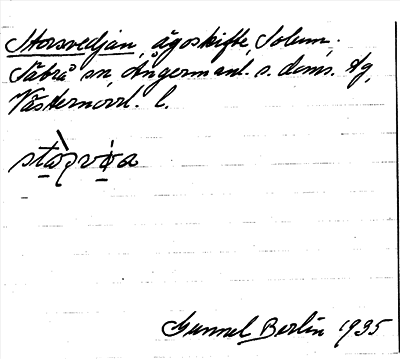 Storsvedjan, ägoskifte, Solum.
Säbrå sn, Ångermanl. s. doms. Ag,
Västernorrl. l.
Gunnel Berlin 1935